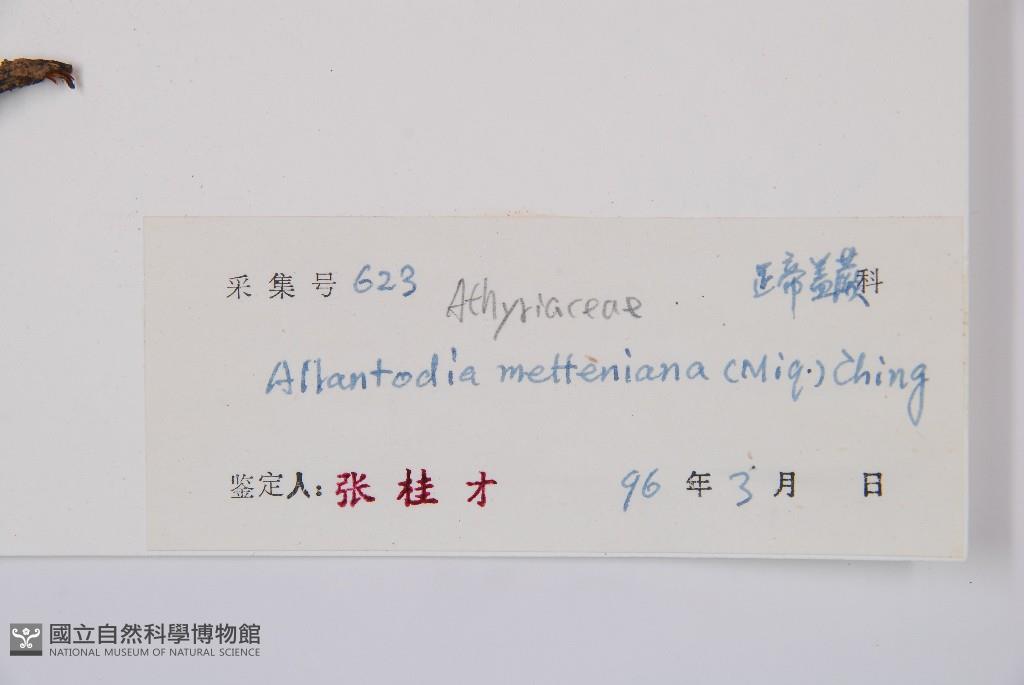 采集号 623 Athyriaceae 蹄盖蕨科
Allantodia metteniana (Miq.) Ching
鉴定人: 张桂才 96 年 3 月 日
國立自然科學博物館
NATIONAL MUSEUM OF NATURAL SCIENCE